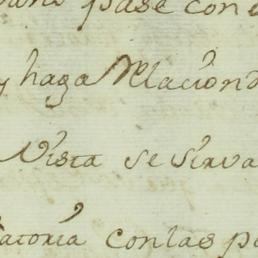 pase con
y haga Relacion
Vista se sirva
atoria con las p